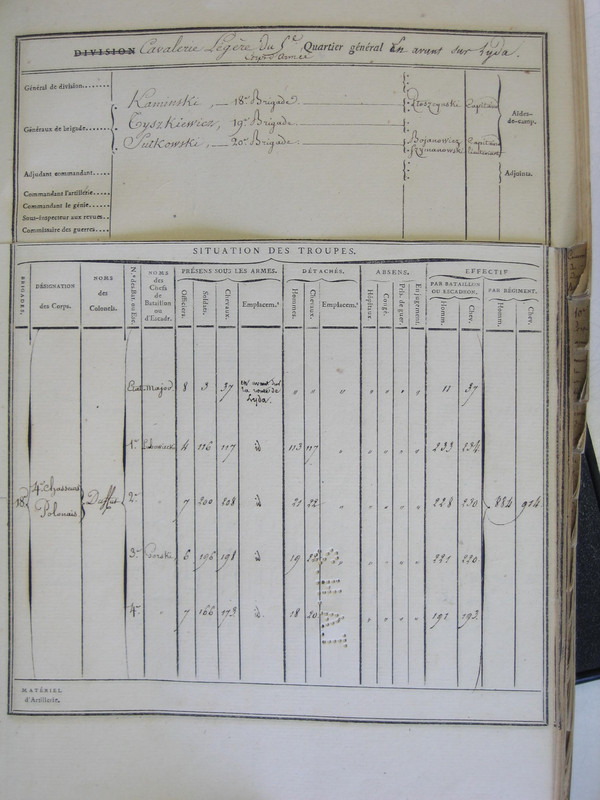 DIVISION Cavalerie Légère du 5e Corps d'Armée Quartier général En avant sur Lyda.
Général de division......
Généraux de brigade......
Kaminski, — 18e Brigade. Capitaine
Tyszkiewicz, 19e Brigade.
Sulkowski, — 20e Brigade. Bojanowicz Capitaine
Szymanowski Lieutenant
Aides-de-camp.
Adjudant commandant..... Adjoints.
Commandant l'artillerie.....
Commandant le génie.....
Sous-inspecteur aux revues...
Commissaire des guerres....
SITUATION DES TROUPES.
BRIGADES. DÉSIGNATION des Corps. NOMS des Colonels. N.os des Bat. ou Esc. NOMS des Chefs de Bataillon ou d'Escadr.
PRÉSENS SOUS LES ARMES. DÉTACHÉS. ABSENS. EFFECTIF
PAR BATAILLON OU ESCADRON. PAR RÉGIMENT.
Officiers. Soldats. Chevaux. Emplacem.t Hommes. Chevaux. Emplacem.t Hôpitaux. Congé. Pris. de guer. En jugement. Homm. Chev. Homm. Chev.
Etat Major. 8 3 37 en avant sur la route de Lyda. " " " " " " " 11 37
1er 4 116 117 id 113 117 " " " " 233 234
18e 4e Chasseurs Polonais 2e " 7 200 208 id 21 22 " " " " " 228 230 884 914
3e 6 196 198 id 19 22 " " " " 221 220
4e " 7 166 173 id. 18 20 " " " " 191 193
MATÉRIEL
d'Artillerie.